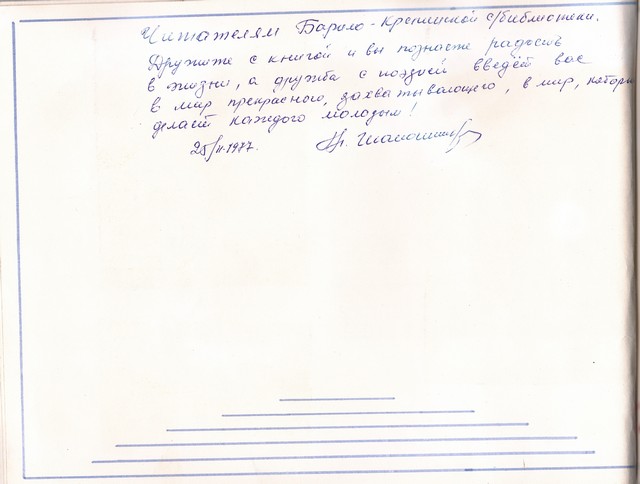 Читателям Барило-Крепинской с/библиотеки.
Дружите с книгой и вы познаете радость
в жизни, а дружба с поэзией введёт вас
в мир прекрасного, захватывающего, в мир, который
делает каждого молодым!
25/II-1977.